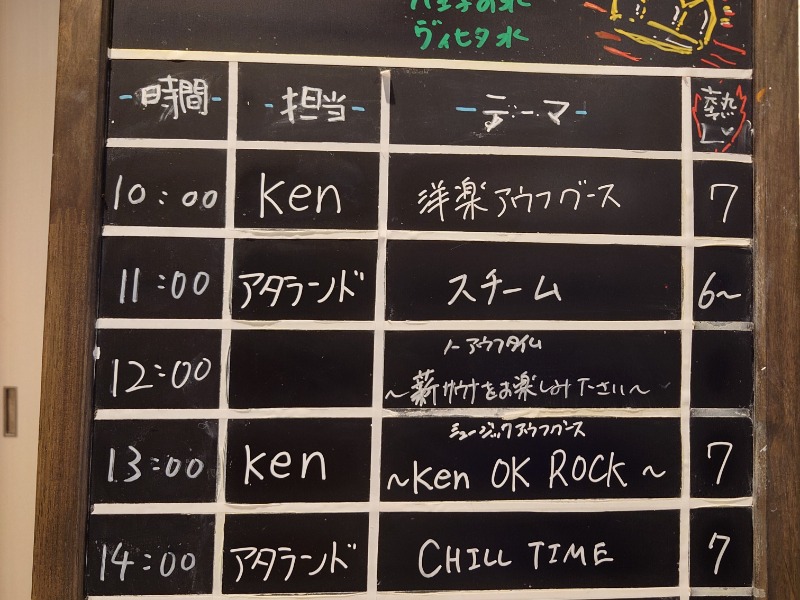 ヴィヒタ水
時間 担当 テーマ 熱レベ
10:00 Ken 洋楽アウフグース 7
11:00 アタランド スチーム 6~
12:00 ノーアウフタイム
~薪サウナをお楽しみ下さい~
13:00 Ken ミュージックアウフグース 7
~Ken OK ROCK ~
14:00 アタランド CHILL TIME 7